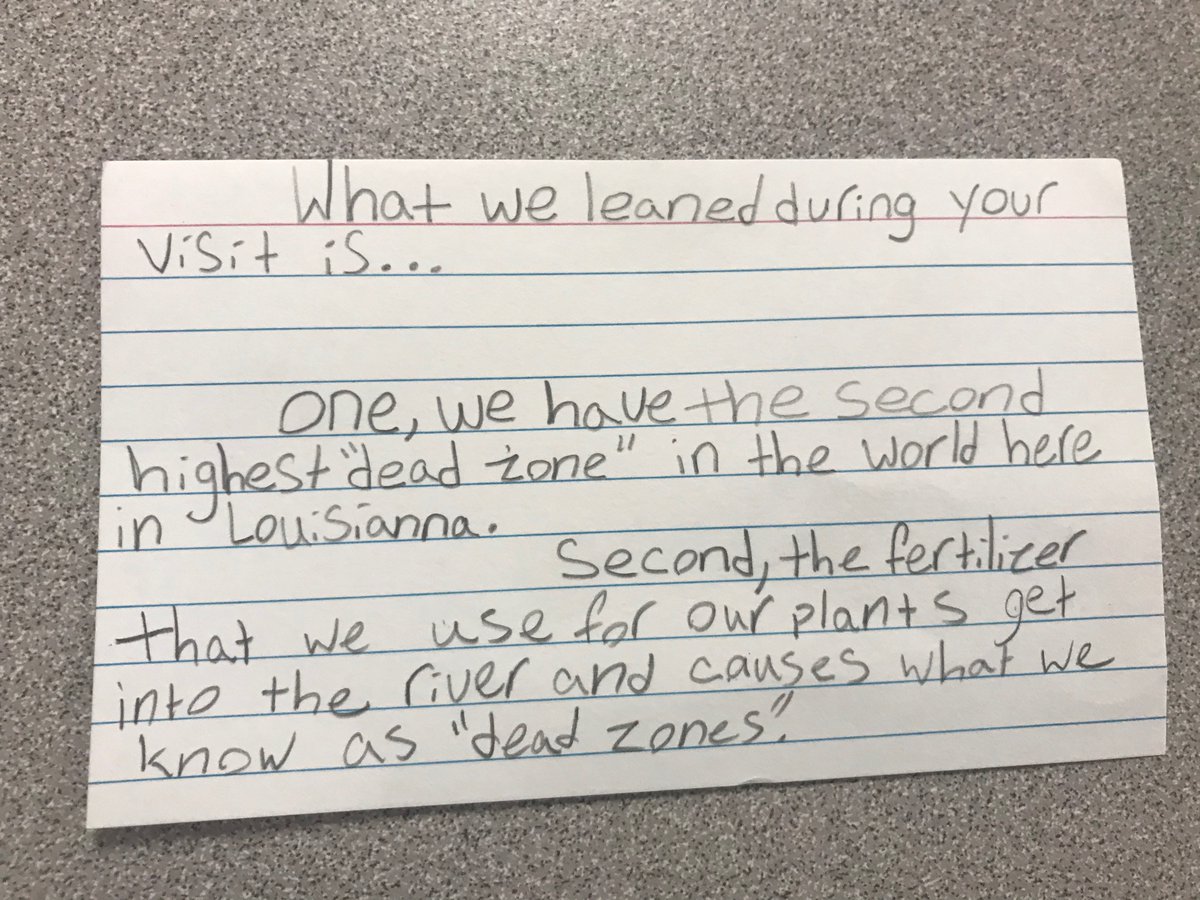 What we leaned during your
visit is...
One, we have the second
highest "dead zone" in the world here
in Louisianna.
Second, the fertilizer
that we use for our plants get
into the river and causes what we
know as "dead zones".